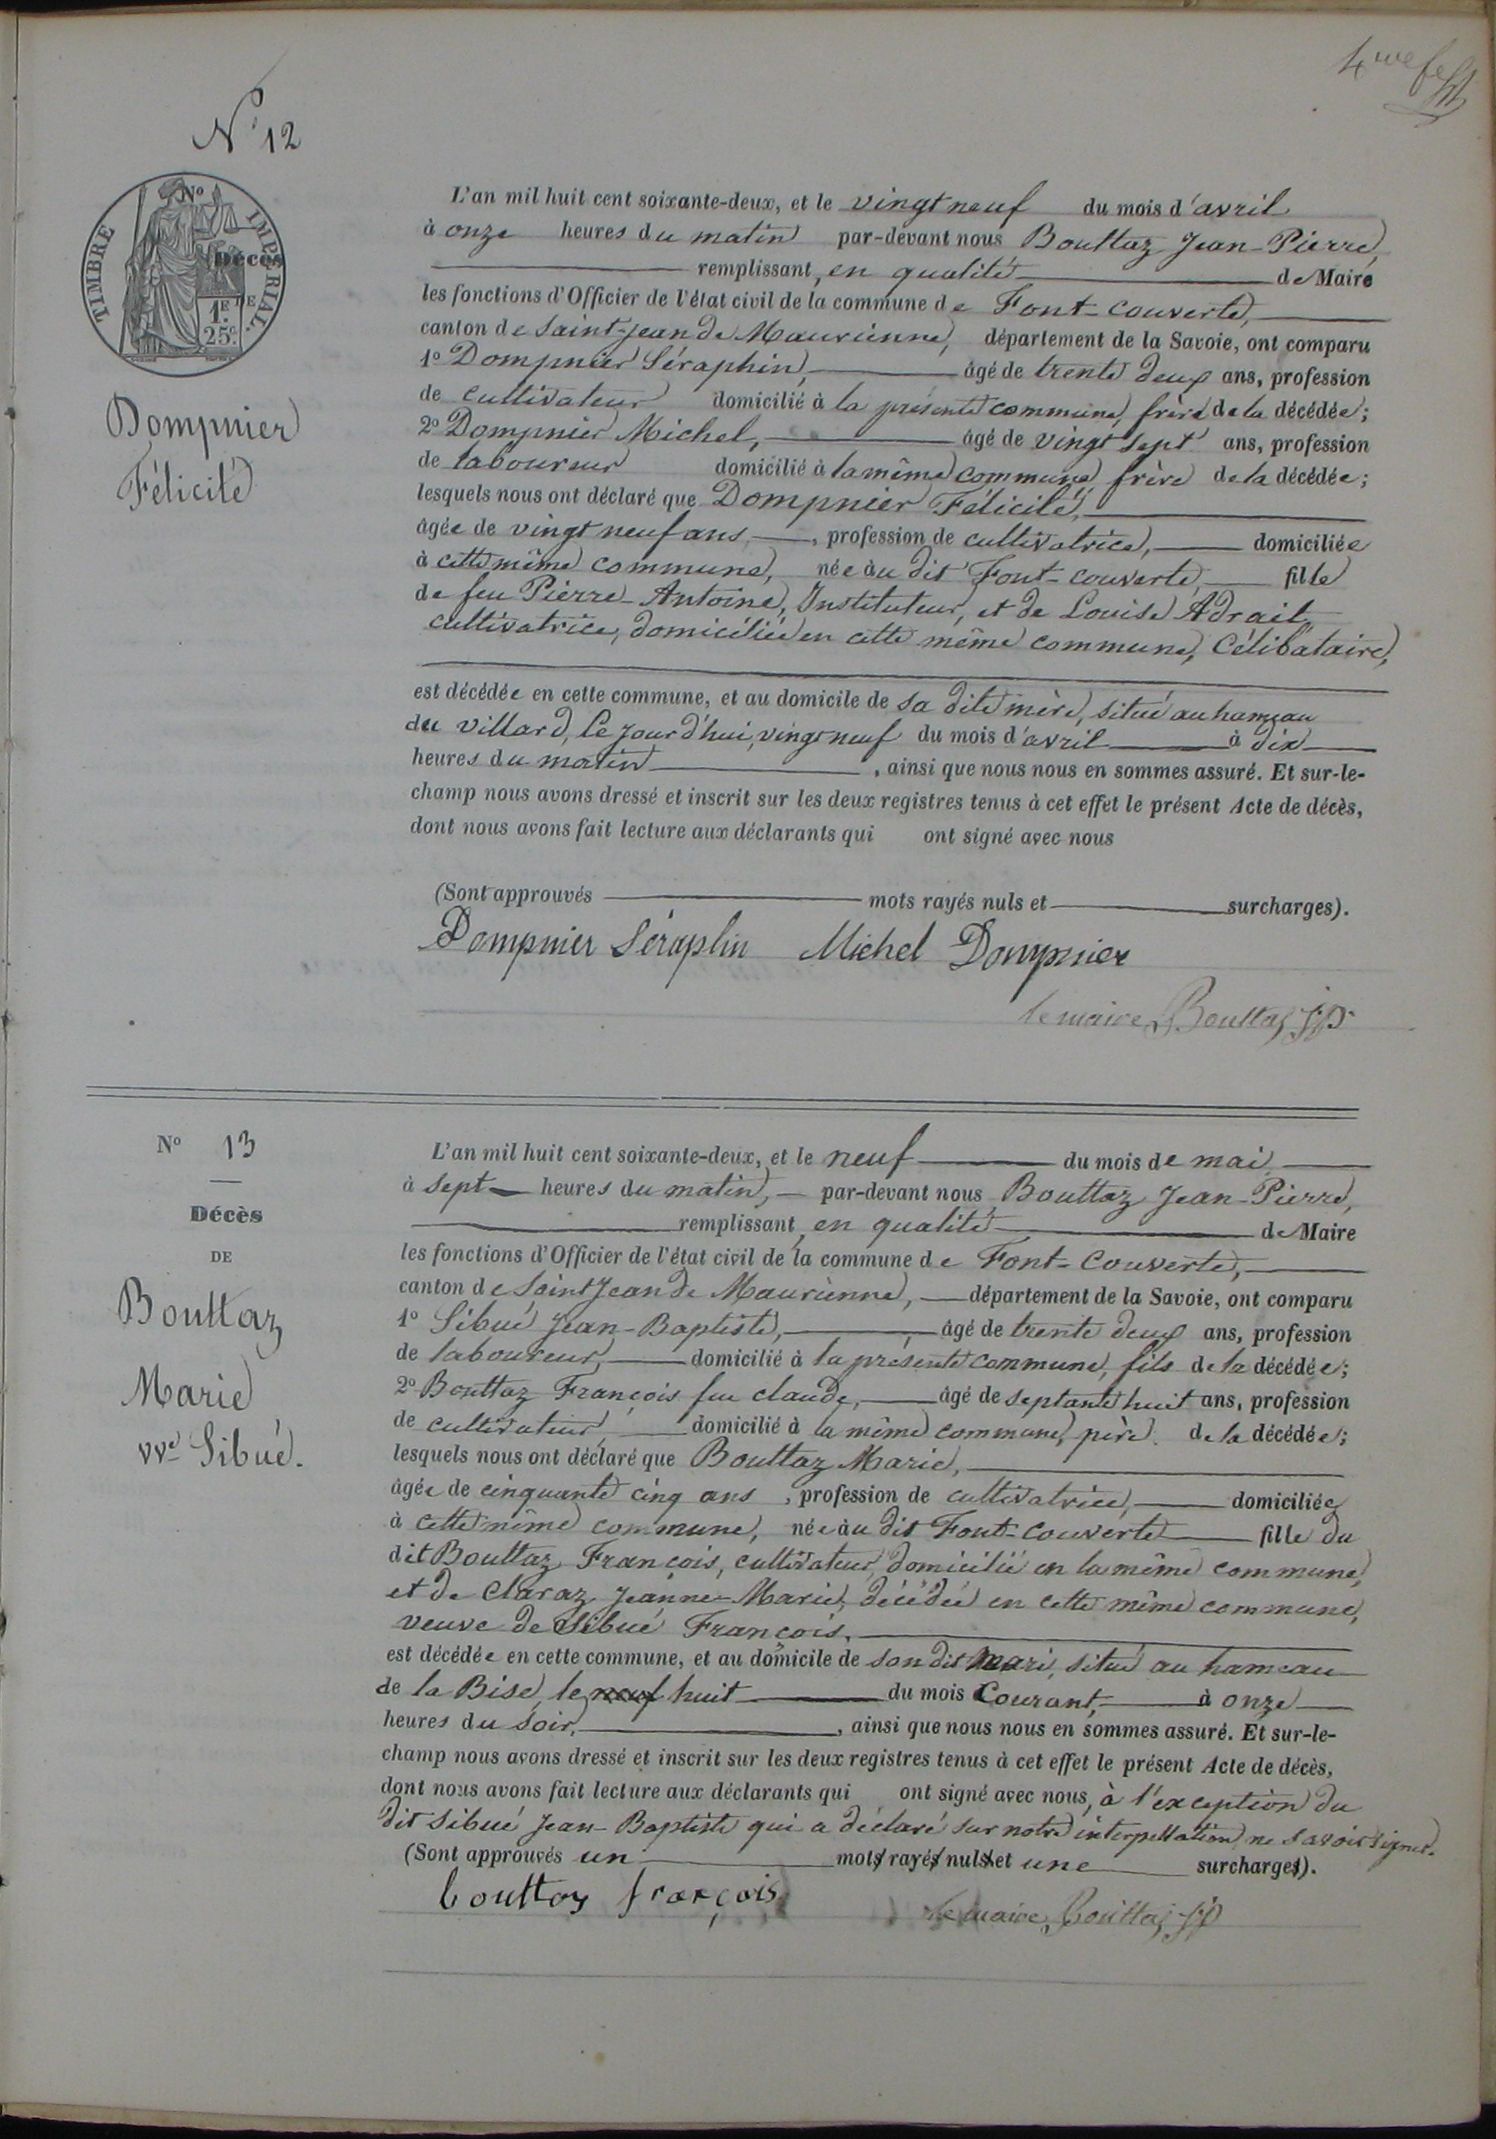 N° 12
TIMBRE IMPÉRIAL.
N°
Décès
DE
1F
25c.
Dompnier
Félicité
L'an mil huit cent soixante-deux, et le vingt neuf du mois d'avril
à onze heures du matin par-devant nous Bouttaz Jean-Pierre,
remplissant, en qualité de Maire
les fonctions d'Officier de l'état civil de la commune de Font-couverte,
canton de Saint-jean de Maurienne, département de la Savoie, ont comparu
1° Dompnier Séraphin, âgé de trente deux ans, profession
de cultivateur domicilié à la présente commune, frère de la décédée;
2° Dompnier Michel, âgé de vingt sept ans, profession
de laboureur domicilié à la même commune, frère de la décédée;
lesquels nous ont déclaré que Dompnier Félicité,
âgée de vingt neuf ans, profession de cultivatrice, domiciliée
à cette même commune, née àu dit Font-couverte, fille
de feu Pierre-Antoine, Instituteur, et de Louise Adrait,
cultivatrice, domiciliée en cette même commune, Célibataire,
est décédée en cette commune, et au domicile de sa dite mère, situé au hameau
du villard, le jourd'hui, vingt neuf du mois d'avril à dix
heures du matin, ainsi que nous nous en sommes assuré. Et sur-le-
champ nous avons dressé et inscrit sur les deux registres tenus à cet effet le présent Acte de décès,
dont nous avons fait lecture aux déclarants qui ont signé avec nous
(Sont approuvés mots rayés nuls et surcharges).
Dompnier Séraphin Michel Dompnier
le maire Bouttaz j p
N° 13
Décès
DE
Bouttaz
Marie
vve Sibué.
L'an mil huit cent soixante-deux, et le neuf du mois de mai
à sept heures du matin, par-devant nous Bouttaz Jean-Pierre,
remplissant, en qualité de Maire
les fonctions d'Officier de l'état civil de la commune de Font-Couverte,
canton de Saint Jean de Maurienne, département de la Savoie, ont comparu
1° Sibué Jean-Baptiste, âgé de trente deux ans, profession
de laboureur, domicilié à la présente commune, fils de la décédée;
2° Bouttaz François feu claude, âgé de septante huit ans, profession
de cultivateur, domicilié à la même commune, père de la décédée;
lesquels nous ont déclaré que Bouttaz Marie,
âgée de cinquante cinq ans, profession de cultivatrice, domiciliée
à cette même commune, née àu dit Font-couverte fille du
dit Bouttaz François, cultivateur, domicilié en la même commune,
et de Claraz Jeanne-Marie, décédée en cette même commune,
veuve de Sibué François.
est décédée en cette commune, et au domicile de son dit mari, situé au hameau
de la Bise, le neuf huit du mois Courant, à onze
heures du soir, ainsi que nous nous en sommes assuré. Et sur-le-
champ nous avons dressé et inscrit sur les deux registres tenus à cet effet le présent Acte de décès,
dont nous avons fait lecture aux déclarants qui ont signé avec nous, à l'exception du
dit Sibué Jean-Baptiste qui a déclaré sur notre interpellation ne savoir signer.
(Sont approuvés un mots rayés nuls et une surcharges).
bouttaz françois
le maire Bouttaz j p